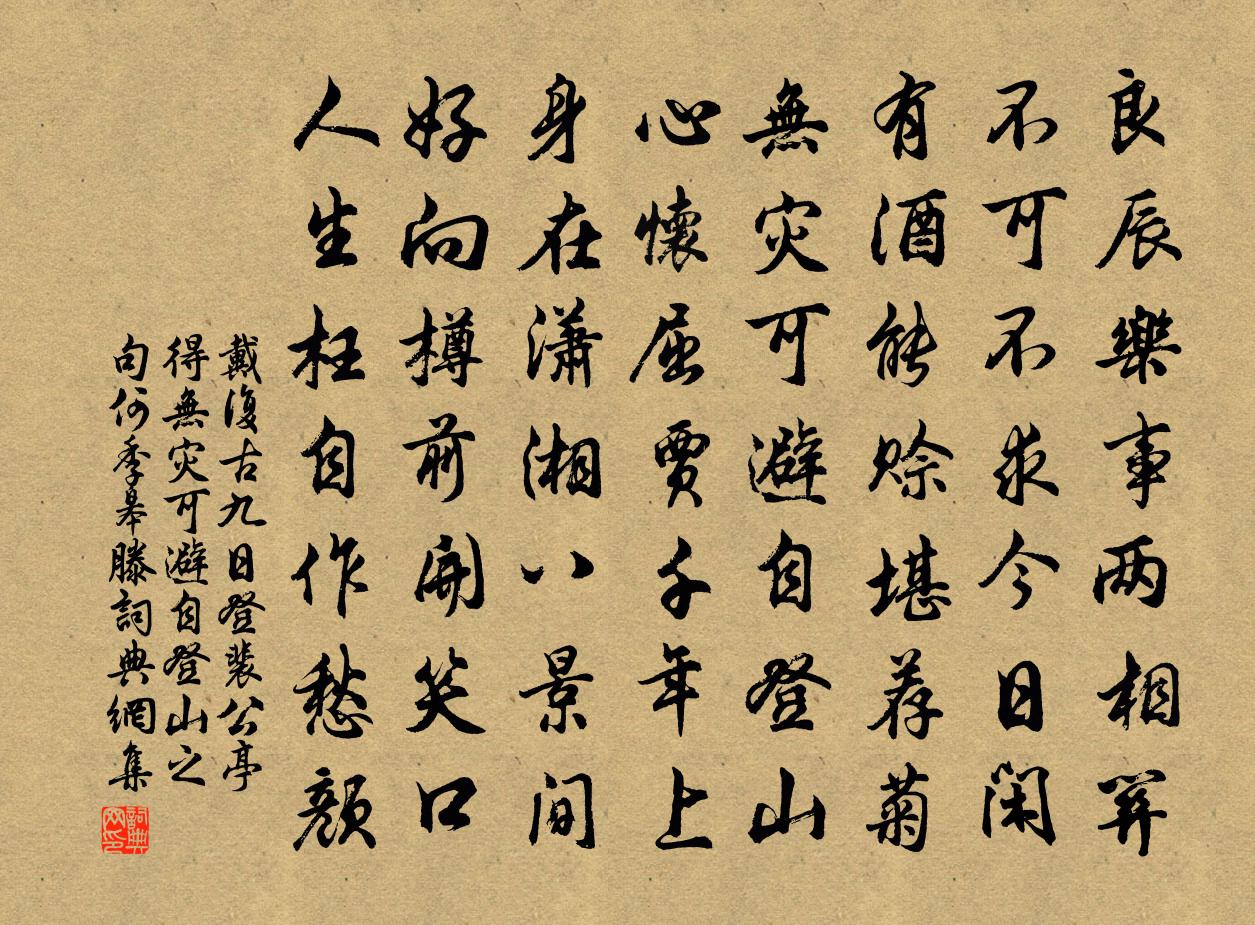 良辰樂事两相關
不可不求今日閑
有酒能賒堪荐菊
無灾可避自登山
心懷屈賈千年上
身在潇湘八景間
好向樽前開笑口
人生枉自作愁顔
戴復古九日登裴公亭
得無灾可避自登山之
句何季皋滕詞典網集
詞典网印